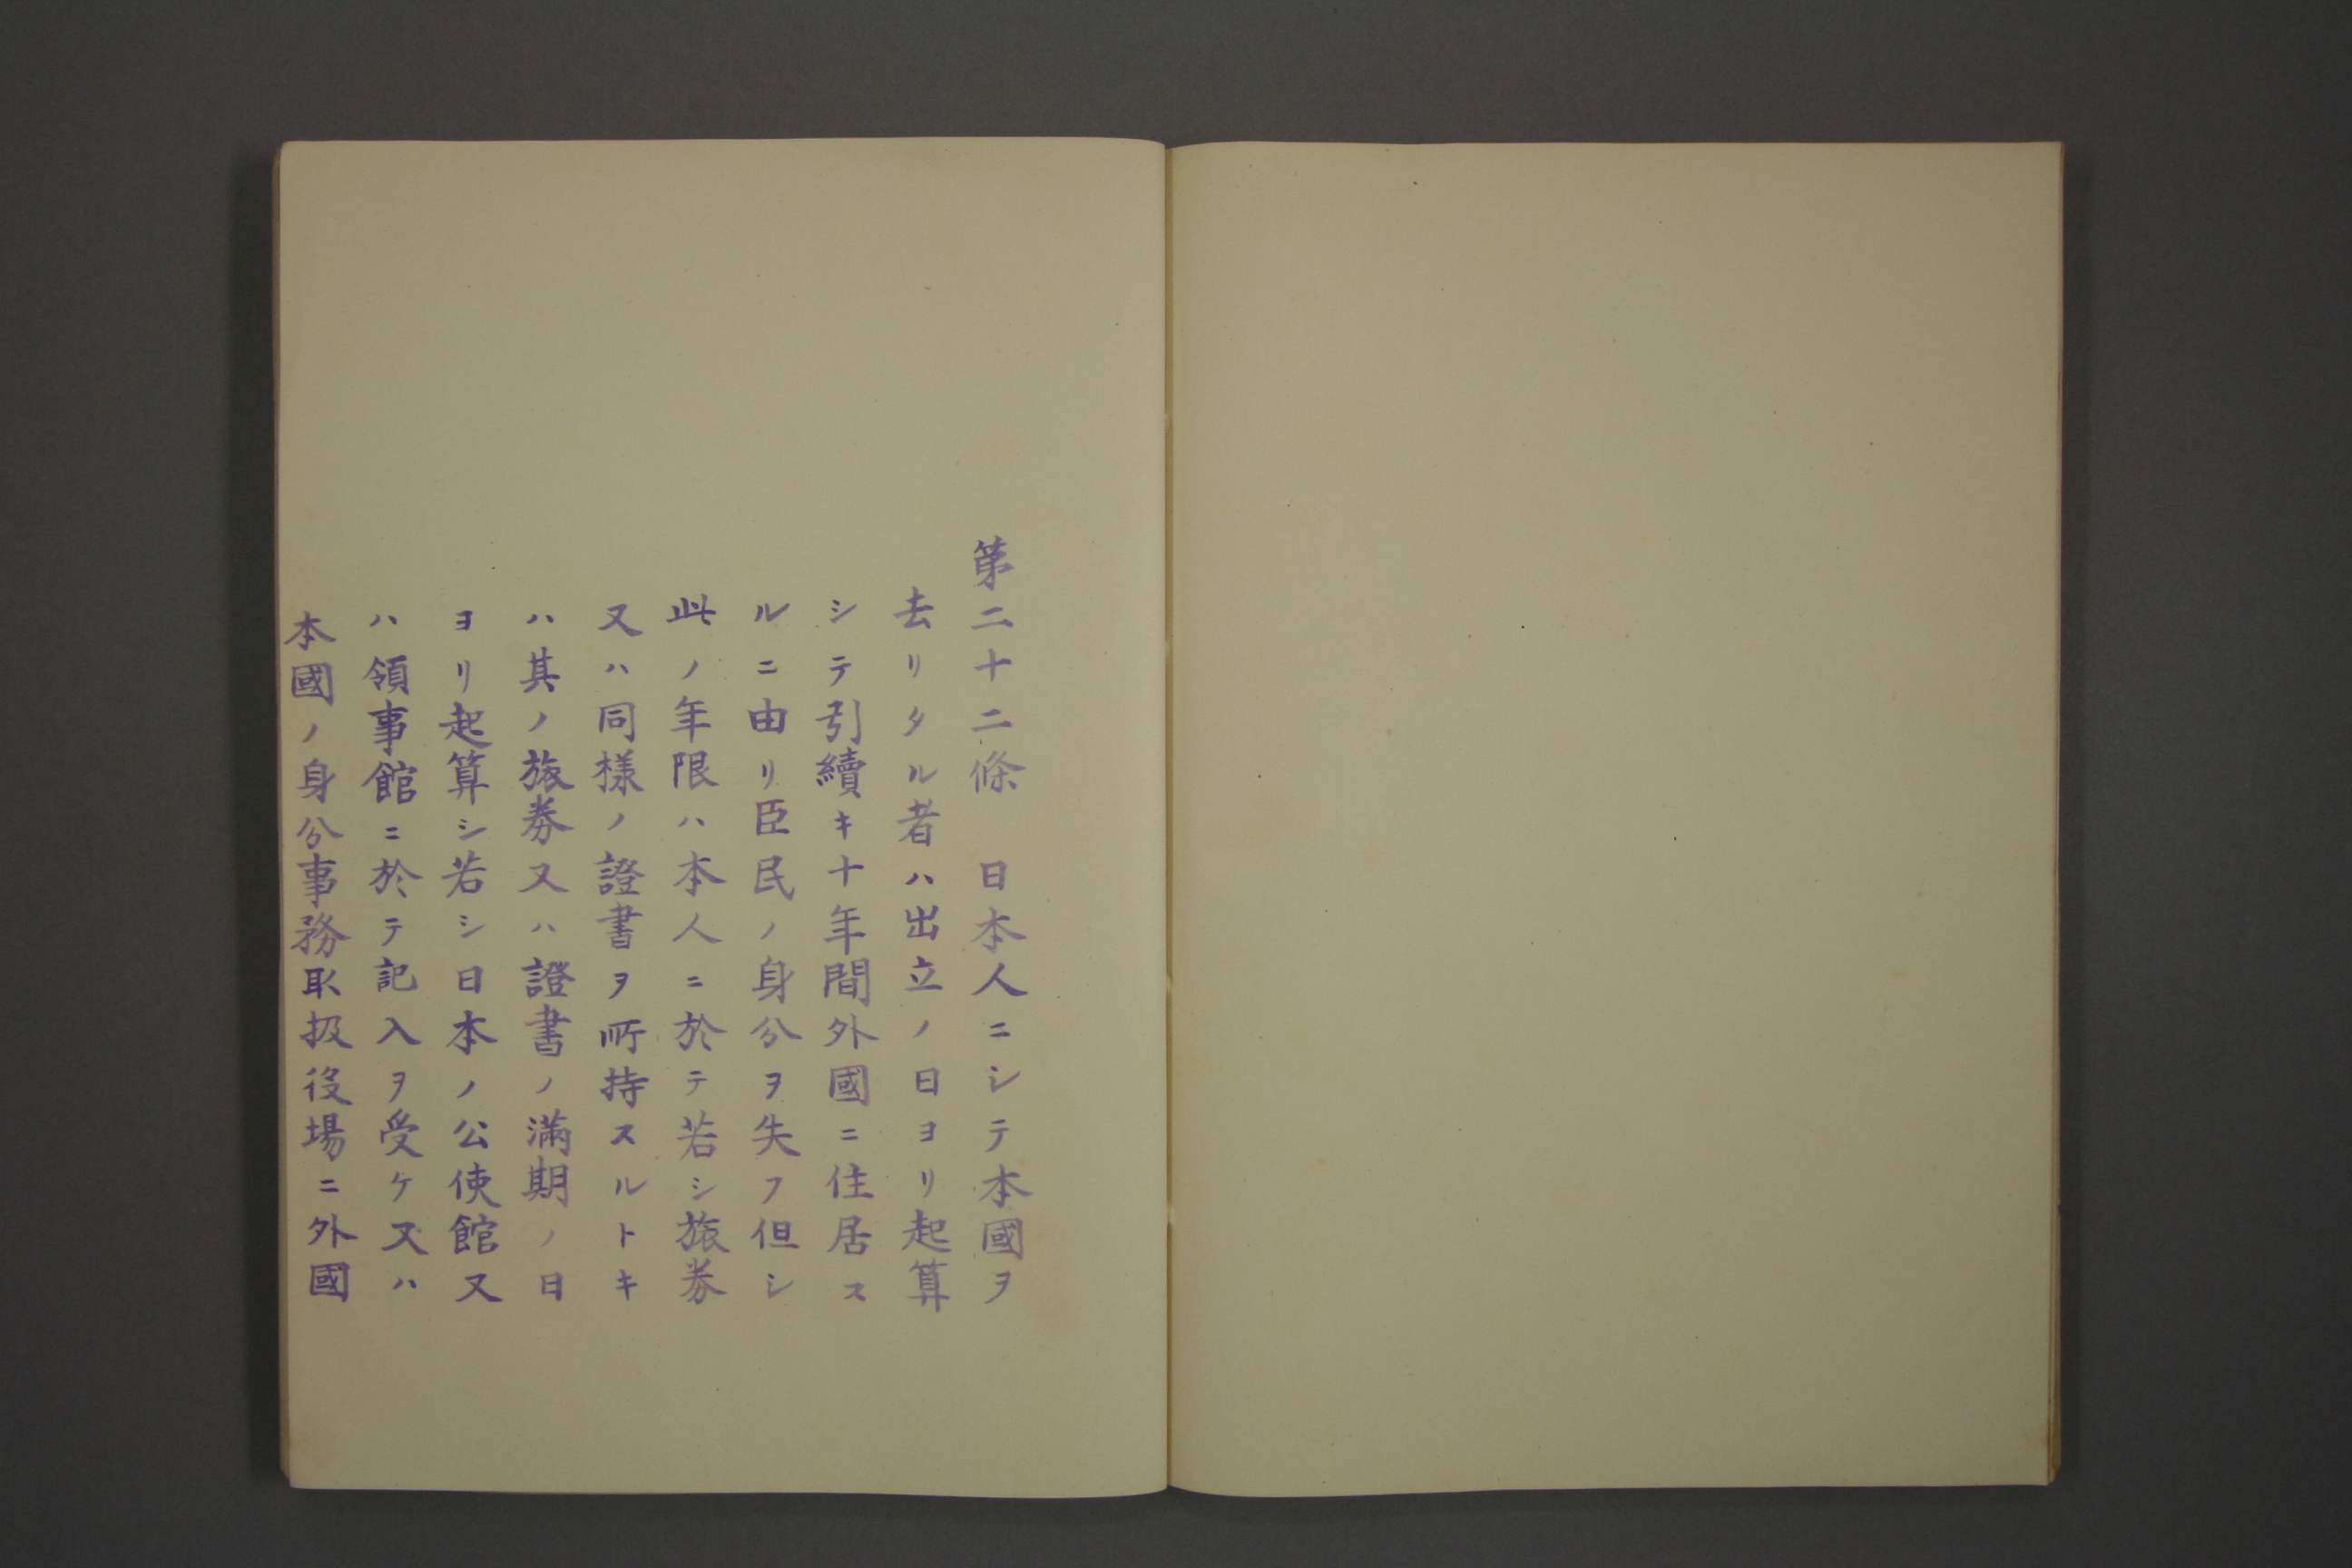 第二十二條　日本人ニシテ本國ヲ
去リタル者ハ出立ノ日ヨリ起算
シテ引續キ十年間外國ニ住居ス
ルニ由リ臣民ノ身分ヲ失フ但シ
此ノ年限ハ本人ニ於テ若シ旅券
又ハ同樣ノ證書ヲ所持スルトキ
ハ其ノ旅券又ハ證書ノ滿期ノ日
ヨリ起算シ若シ日本ノ公使館又
ハ領事館ニ於テ記入ヲ受ケ又ハ
本國ノ身分事務取扱役場ニ外國